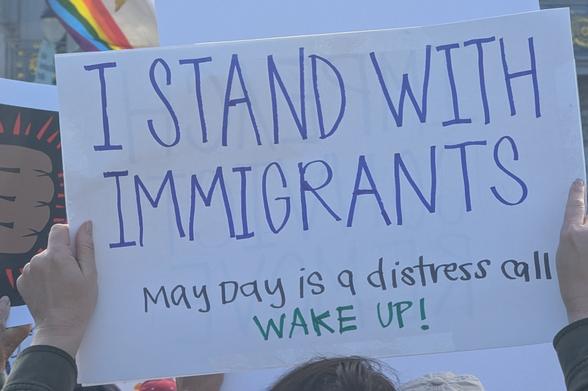 I STAND WITH
IMMIGRANTS
May Day is a distress call
WAKE UP!